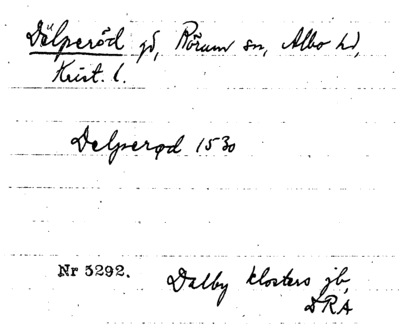 Dälperöd gd, Rörum sn, Albo hd,
Krist. l.
Delperød 1530
Nr 5292.
Dalby klosters jb,
DRA